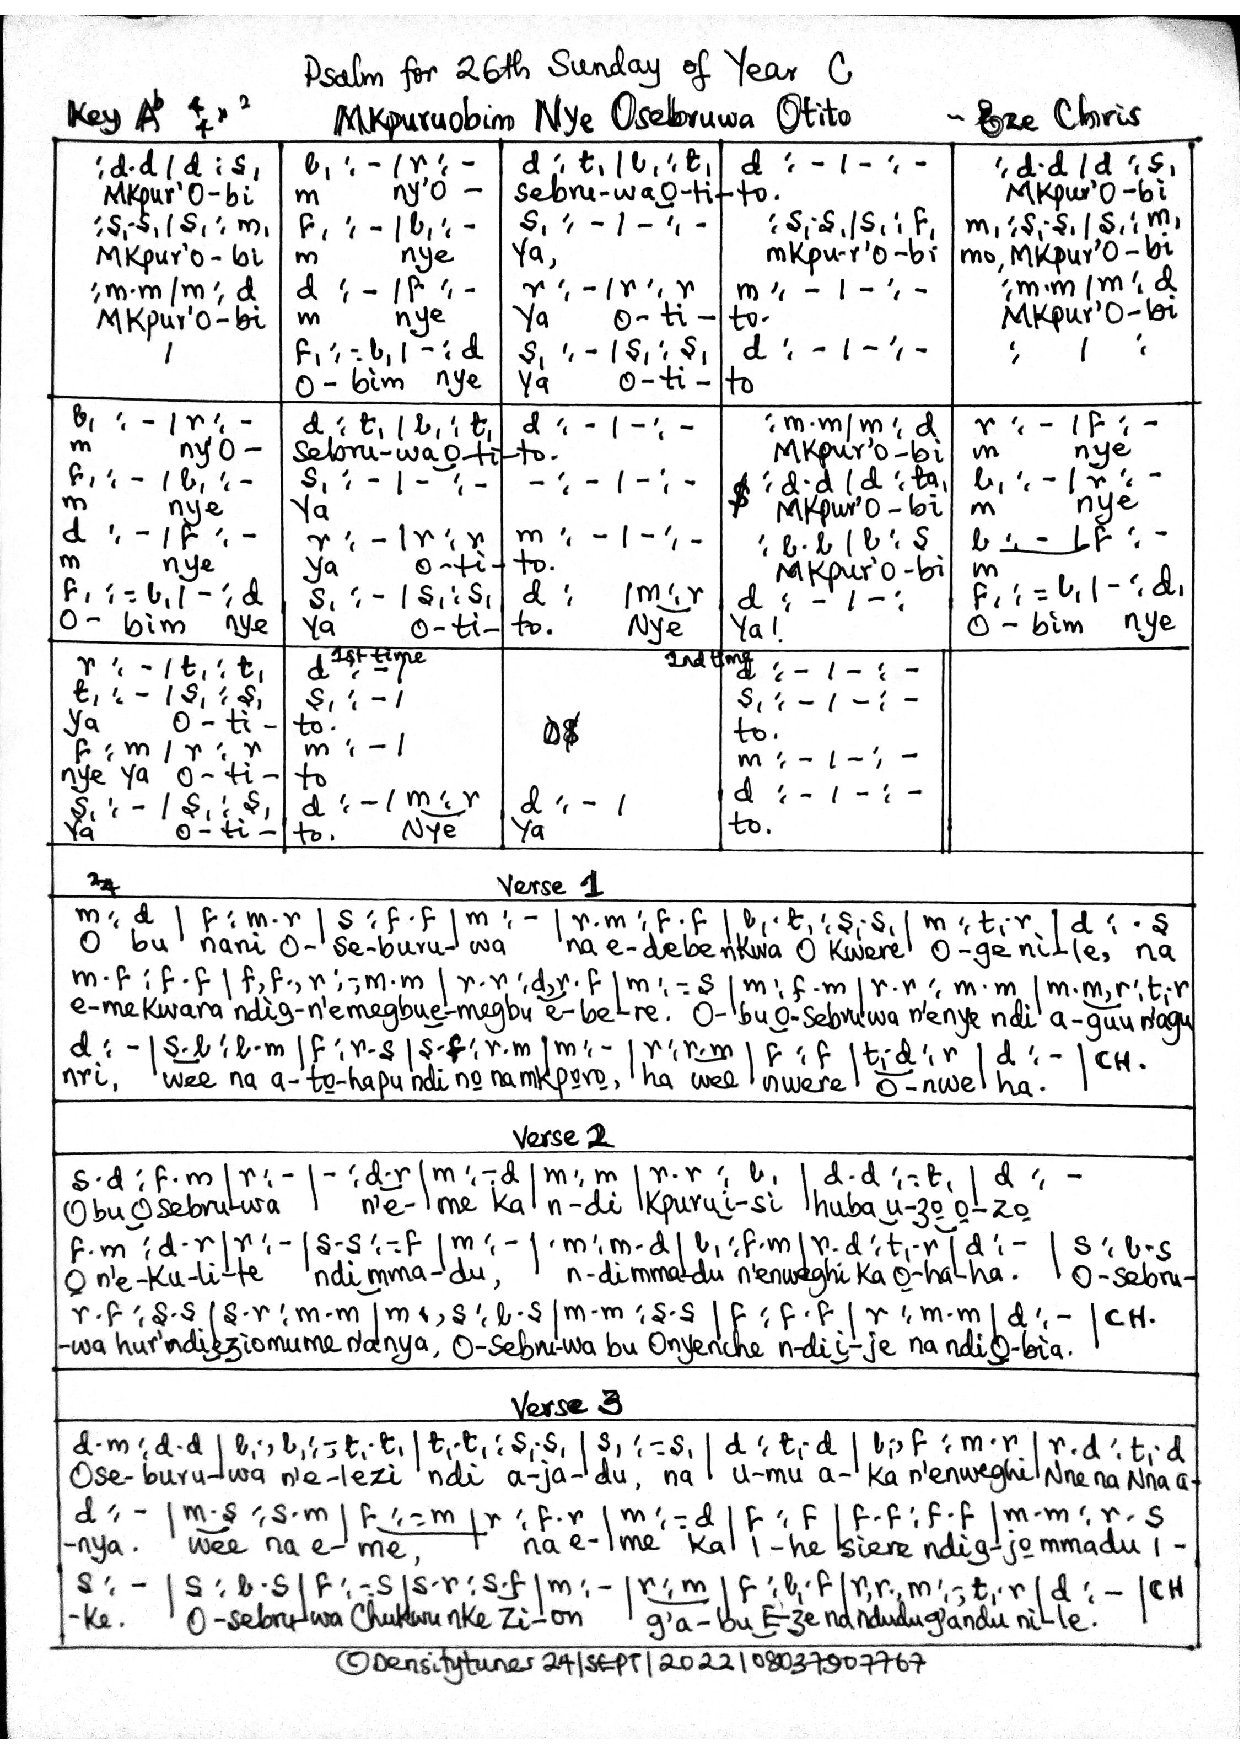 Psalm for 26th Sunday of Year C
Key Ab 4/4 x 2 MKpuruobim Nye Osebruwa Otito - Eze Chris
:d.d/d:s, l,:-/r:- d:t,/l,:t, d:-/-:- :d.d/d:s,
MKpur'O-bi m ny'O- sebru-wa O-ti-to. MKpur'O-bi
:s,.s,/s,:m, f,:-/l,:- s,:-/-:- :s,.s,/s,:f, m,:s,.s,/s,:m,
MKpur'O-bi m nye Ya, mKpu-r'O-bi mo, MKpur'O-bi
:m.m/m:d d:-/f:- r:-/r:r m:-/-:- :m.m/m:d
MKpur'O-bi m nye Ya O-ti-to. MKpur'O-bi
/ f,:=l,/-:d s,:-/s,:s, d:-/-:- : / :
O-bim nye Ya O-ti-to
l,:-/r:- d:t,/l,:t, d:-/-:- :m.m/m:d r:-/f:-
m ny'O- Sebru-wa O-ti-to. MKpur'O-bi m nye
f,:-/l,:- s,:-/-:- -:-/-:- $ :d.d/d:ta, l,:-/r:-
m nye Ya MKpur'O-bi m nye
d:-/f:- r:-/r:r m:-/-:- :l.l/l:s l:-/f:-
m nye Ya O-ti-to. MKpur'O-bi m
f,:=l,/-:d s,:-/s,:s, d: /m:r d:-/-: f,:=l,/-:d,
O-bim nye Ya O-ti-to. Nye Ya! O-bim nye
1st time 2nd time
r:-/t,:t, d:-/ d:-/-:-
t,:-/s,:s, s,:-/ s,:-/-:-
Ya O-ti-to. D$ to.
f:m/r:r m:-/ m:-/-:-
nye Ya O-ti-to
s,:-/s,:s, d:-/m:r d:-/ d:-/-:-
Ya O-ti-to. Nye Ya to.
2/4 Verse 1
m:d|f:m.r|s:f.f|m:-|r.m:f.f|l,.t,:s,.s,|m:t,.r|d:.s
O bu nani O-se-buru-wa na e-debe nkwa O Kwere O-ge ni-le, na
m.f:f.f|f,f.,r:=m.m|r.r:d,r.f|m:=s|m:f.m|r.r:m.m|m.m,r:t,.r
e-me Kwara ndig-n'emegbue-megbu e-be-re. O-bu O-sebruwa n'enye ndi a-guu n'agu
d:-|s.l:l.m|f:r.s|s.f:r.m|m:-|r:r.m|f:f|t,.d:r|d:-|CH.
nri, wee na a-to-hapu ndi no na mkporo, ha wee nwere O-nwe ha.
Verse 2
s.d:f.m|r:-|-:d.r|m:=d|m:m|r.r:l,|d.d:=t,|d:-
O bu O sebru-wa n'e-me ka n-di Kpuru i-si huba u-zo o-zo
f.m:d.r|r:-|s.s:=f|m:-|.m:m.d|l,:f.m|r.d:t,.r|d:-|s:l.s
O n'e-Ku-li-te ndi mma-du, n-di mma-du n'enweghi Ka O-ha-ha. O-sebru-
r.f:s.s|s.r:m.m|m.,s:l.s|m.m:s.s|f:f.f|r:m.m|d:-|CH.
-wa hur'ndi eziomume n'anya, O-sebru-wa bu Onyenche n-di i-je na ndi O-bia.
Verse 3
d.m:d.d|l,.,l,:=t,.t,|t,.t,:s,.s,|s,:=s,|d:t,.d|l,.,f:m.r|r.d:t,.d
Ose-buru-wa n'e-lezi ndi a-ja-du, na u-mu a-ka n'enweghi Nne na Nna a-
d:-|m.s:s.m|f:=m|r:f.r|m:=d|f:f|f.f:f.f|m.m:r.s
-nya. wee na e-me, na e-me ka i-he siere ndig-jo mmadu i-
s:-|s:l.s|f:-s|s.r:s.f|m:-|r:m|f:l,.f|r,r.,m:=,t,.r|d:-|CH
-ke. O-sebru-wa Chukwu nke Zi-on g'a-bu E-ze na ndudug'andu ni-le.
©Densitytunes 24/SEPT/2022/08037907767